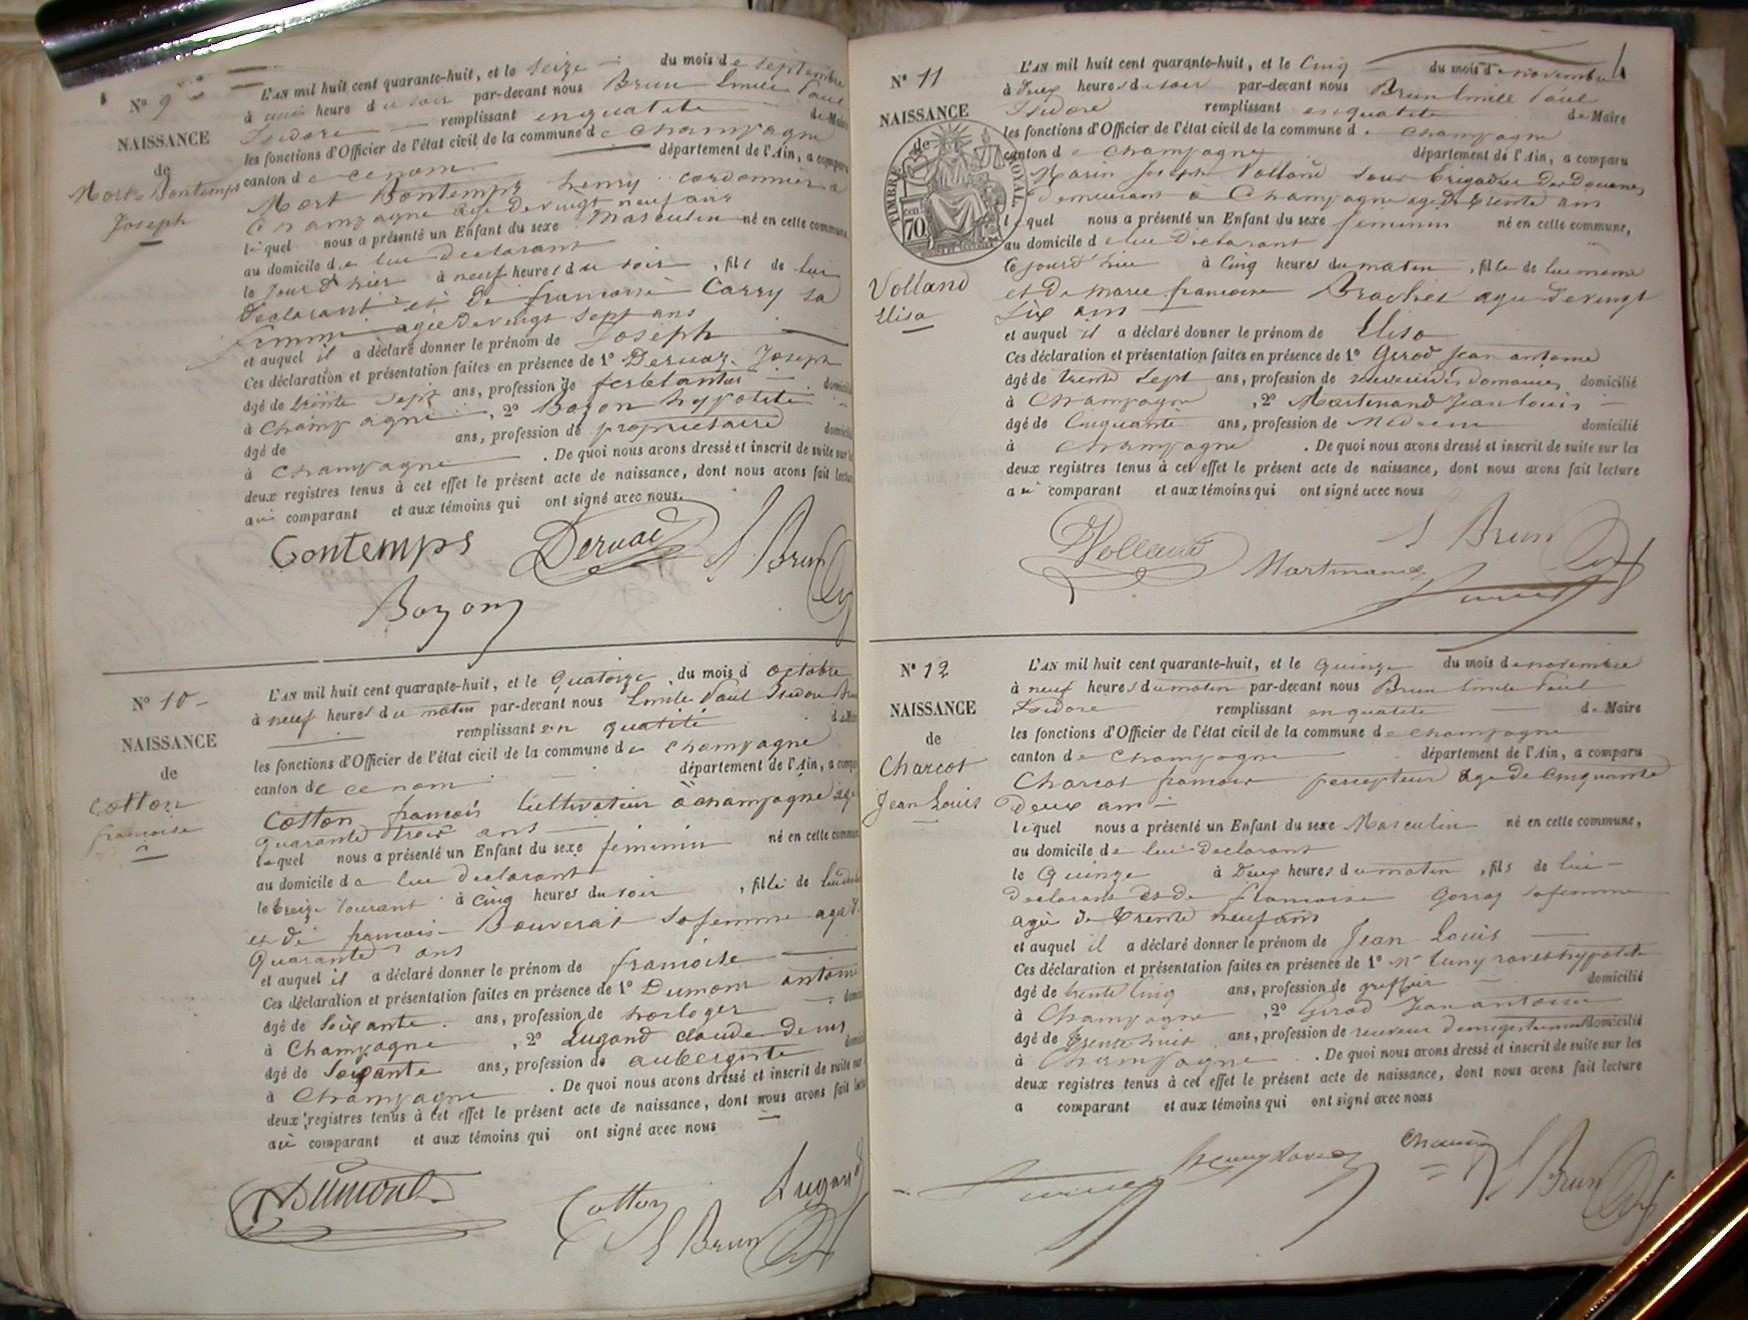 N° 9
NAISSANCE
de
Mort-Bontemps
Joseph
L'AN mil huit cent quarante-huit, et le seize du mois de septembre
à heure du soir par-devant nous Brun Emile Paul
Isidore remplissant en qualité de Maire
les fonctions d'Officier de l'état civil de la commune de Champagne
canton de ce nom département de l'Ain, a comparu
Mort Bontemps henry cordonnier a
Champagne agé de vingt neuf ans
lequel nous a présenté un Enfant du sexe Masculin né en cette commune,
au domicile de lui declarant
le jour d'hier à neuf heures du soir , fils de lui
declarant et de francoise Carry sa
femme agée de vingt sept ans
et auquel il a déclaré donner le prénom de Joseph
Ces déclaration et présentation faites en présence de 1° Dervaz Joseph
âgé de trente sept ans, profession de ferblantier domicilié
à Champagne , 2° Bozon hypolite
âgé de ans, profession de propriétaire domicilié
à Champagne . De quoi nous avons dressé et inscrit de suite sur les
deux registres tenus à cet effet le présent acte de naissance, dont nous avons fait lecture
aux comparant et aux témoins qui ont signé avec nous.
Bontemps Dervaz E Brun
Bozon
N° 10
NAISSANCE
de
Cotton
francoise
L'AN mil huit cent quarante-huit, et le quatorze du mois d octobre
à neuf heures du matin par-devant nous Emile Paul Isidore Brun
remplissant en qualité de Maire
les fonctions d'Officier de l'état civil de la commune de Champagne
canton de ce nom département de l'Ain, a comparu
Cotton francois Cultivateur à champagne agé
quarante trois ans
lequel nous a présenté un Enfant du sexe feminin né en cette commune
au domicile de lui declarant
le treize courant à cinq heures du soir , fille de lui
et de francoise Bouverat sa femme agée d
quarante ans
et auquel il a déclaré donner le prénom de francoise
Ces déclaration et présentation faites en présence de 1° Dumont antoine
âgé de soixante ans, profession de horloger domicilié
à Champagne , 2° Lugand claude denis
âgé de soixante ans, profession de aubergiste domicilié
à Champagne . De quoi nous avons dressé et inscrit de suite sur
deux registres tenus à cet effet le présent acte de naissance, dont nous avons fait lecture
au comparant et aux témoins qui ont signé avec nous
Dumont Cotton Lugand
E Brun
N° 11
NAISSANCE
de
TIMBRE ROYAL
70
Volland
Elisa
L'AN mil huit cent quarante-huit, et le cinq du mois de novembre
à deux heures du soir par-devant nous Brun Emile Paul
Isidore remplissant en qualité de Maire
les fonctions d'Officier de l'état civil de la commune de Champagne
canton de Champagne département de l'Ain, a comparu
Marin Joseph Volland sous brigadier des douanes
demeurant à Champagne agé de trente ans
lequel nous a présenté un Enfant du sexe feminin né en cette commune,
au domicile de lui declarant
le jour d'hier à cinq heures du matin , fille de lui même
et de marie francoise Brachet agée de vingt
six ans
et auquel il a déclaré donner le prénom de Elisa
Ces déclaration et présentation faites en présence de 1° Girod Jean antoine
âgé de trente sept ans, profession de receveur des domaines domicilié
à Champagne , 2° Martinand Jean louis
âgé de Cinquante ans, profession de Médecin domicilié
à Champagne . De quoi nous avons dressé et inscrit de suite sur les
deux registres tenus à cet effet le présent acte de naissance, dont nous avons fait lecture
au comparant et aux témoins qui ont signé avec nous
Volland Martinand E Brun
N° 12
NAISSANCE
de
Charcot
Jean Louis
L'AN mil huit cent quarante-huit, et le quinze du mois de novembre
à neuf heures du matin par-devant nous Brun Emile Paul
Isidore remplissant en qualité de Maire
les fonctions d'Officier de l'état civil de la commune de champagne
canton de Champagne département de l'Ain, a comparu
Charcot francois percepteur agé de cinquante
deux ans
lequel nous a présenté un Enfant du sexe Masculin né en cette commune,
au domicile de lui declarant
le Quinze à deux heures du matin , fils de lui
declarant et de francoise Gorraz sa femme
agée de trente neuf ans
et auquel il a déclaré donner le prénom de Jean Louis
Ces déclaration et présentation faites en présence de 1° hypolite
âgé de trente cinq ans, profession de greffier domicilié
à Champagne , 2° Girod Jean antoine
âgé de trente huit ans, profession de receveur d'enregistrement domicilié
à Champagne . De quoi nous avons dressé et inscrit de suite sur les
deux registres tenus à cet effet le présent acte de naissance, dont nous avons fait lecture
a comparant et aux témoins qui ont signé avec nous
E Brun